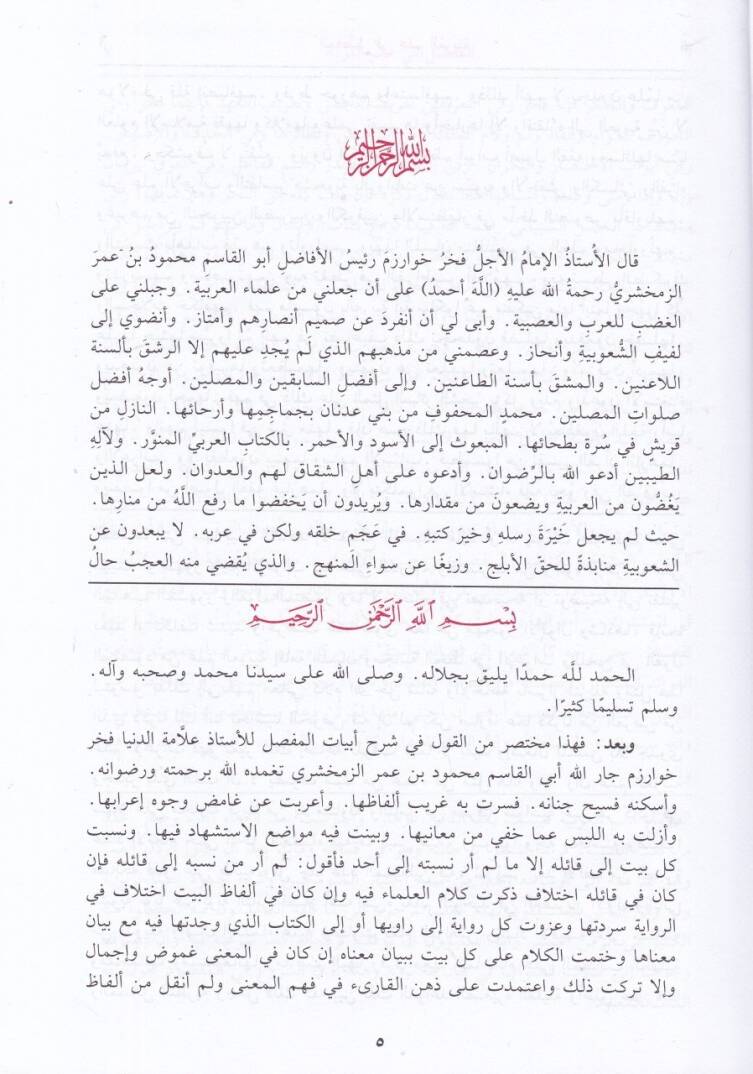 بسم الله الرحمن الرحيم
قال الأُستاذُ الإمامُ الأجلُّ فخرُ خوارزمَ رئيسُ الأفاضلِ أبو القاسمِ محمودُ بنُ عمرَ
الزمخشريُّ رحمةُ الله عليهِ (اللَّهَ أحمدُ) على أن جعلني من علماء العربيّة. وجبلني على
الغضبِ للعرب والعصبية. وأبى لي أن أنفردَ عن صميم أنصارِهم وأمتاز. وأنضوي إلى
لفيفِ الشُّعوبيةِ وأنحاز. وعصمني من مذهبهم الذي لَم يُجدِ عليهم إلا الرشقَ بألسنة
اللاعنين. والمشقَ بأسنة الطاعنين. وإلى أفضلِ السابقين والمصلين. أوجهُ أفضل
صلواتِ المصلين. محمدٍ المحفوفِ من بني عدنان بجماجمِها وأرحائها. النازلِ من
قريشٍ في سُرة بطحائها. المبعوث إلى الأسود والأحمر. بالكتابِ العربيِّ المنوّر. ولآلِهِ
الطيبين أدعو الله بالرِّضوان. وأدعوه على أهلِ الشقاق لهم والعدوان. ولعل الذين
يَغُضُّون من العربيةِ ويضعونَ من مقدارها. ويُريدون أن يَخفضوا ما رفع اللَّهُ من منارِها.
حيث لم يجعل خَيْرَةَ رسلهِ وخيرَ كتبهِ. في عَجَم خلقه ولكن في عربه. لا يبعدون عن
الشعوبيةِ منابذةً للحقّ الأبلج. وزيغًا عن سواءِ المنهج. والذي يُقضي منه العجبُ حالُ
بِسْمِ اللَّهِ الرَّحْمَٰنِ الرَّحِيمِ
الحمد للَّه حمدًا يليق بجلاله. وصلى الله على سيدنا محمد وصحبه وآله.
وسلم تسليمًا كثيرًا.
وبعد: فهذا مختصر من القول في شرح أبيات المفصل للأستاذ علاَّمة الدنيا فخر
خوارزم جار الله أبي القاسم محمود بن عمر الزمخشري تغمده الله برحمته ورضوانه.
وأسكنه فسيح جنانه. فسرت به غريب ألفاظها. وأعربت عن غامض وجوه إعرابها.
وأزلت به اللبس عما خفي من معانيها. وبينت فيه مواضع الاستشهاد فيها. ونسبت
كل بيت إلى قائله إلا ما لم أر نسبته إلى أحد فأقول: لم أر من نسبه إلى قائله فإن
كان في قائله اختلاف ذكرت كلام العلماء فيه وإن كان في ألفاظ البيت اختلاف في
الرواية سردتها وعزوت كل رواية إلى راويها أو إلى الكتاب الذي وجدتها فيه مع بيان
معناها وختمت الكلام على كل بيت ببيان معناه إن كان في المعنى غموض وإجمال
وإلا تركت ذلك واعتمدت على ذهن القارىء في فهم المعنى ولم أنقل من ألفاظ
٥